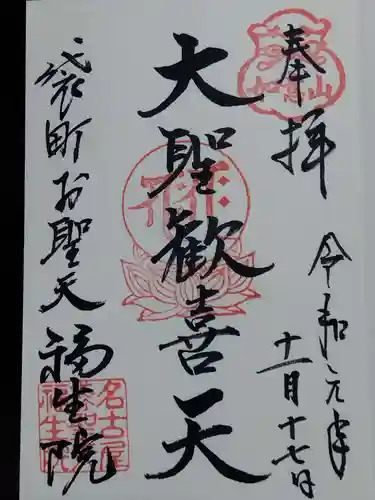 奉拝
令和元年
十一月十七日
大聖歓喜天
袋町お聖天
福生院
名古屋
福生院